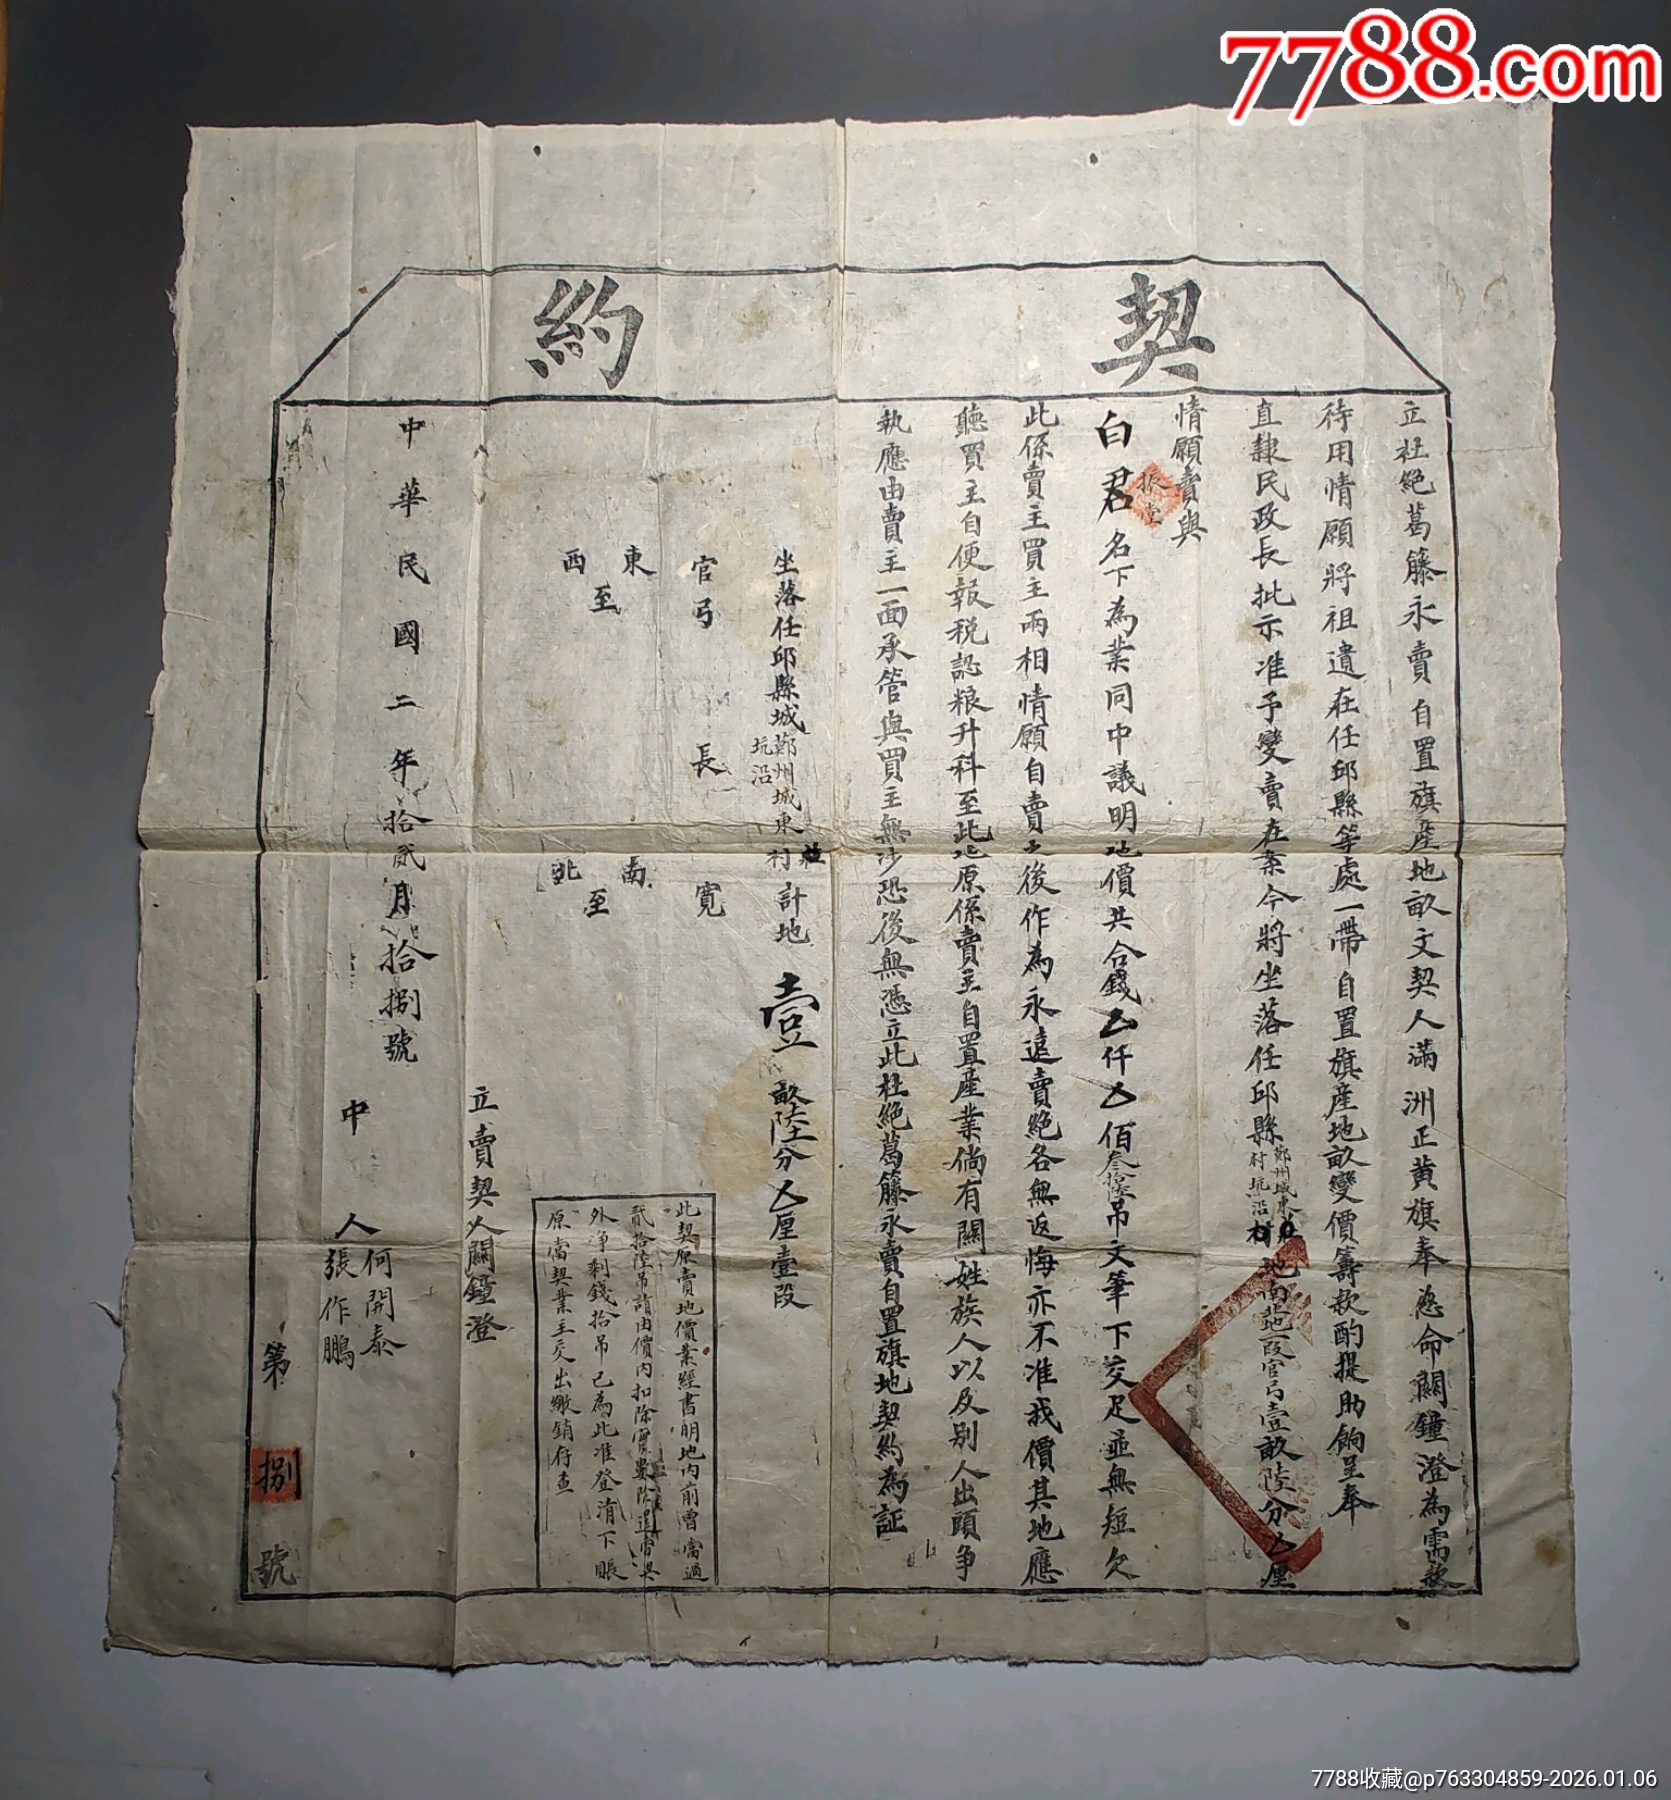 7788.com
契約
立杜絕葛籐永賣自置旗產地畝文契人滿洲正黃旗奉恩命關鐘澄為需款
待用情願將祖遺在任邱縣等處一帶自置旗產地畝變價籌款酌提助餉呈奉
直隸民政長批示准予變賣在案今將坐落任邱縣鄚州城東村坑沿地南北地一段官弓壹畝陸分乙厘
情願賣與
白君振堂名下為業同中議明地價共合錢乙仟乙佰叁拾陸吊文筆下交足並無短欠
此係賣主買主兩相情願自賣之後作為永遠賣絕各無返悔亦不准找價其地應
聽買主自便報稅認粮升科至此地原係賣主自置產業倘有關姓族人以及別人出頭爭
執應由賣主一面承管與買主無涉恐後無憑立此杜絕葛籐永賣自置旗地契約為証
坐落任邱縣城鄚州城東坑沿村計地壹畝陸分乙厘壹段
官弓長寬
東西至南北至
此契原賣地價業經書明地內前曾當過
貳拾陸吊請由價內扣除實數除還當契
外淨剩錢拾吊已為此准登清下賬
原當契業主交出繳銷存查
立賣契人關鐘澄
中華民國二年拾貳月拾捌號
中人何開泰
張作鵬
第捌號
7788收藏@p763304859-2026.01.06